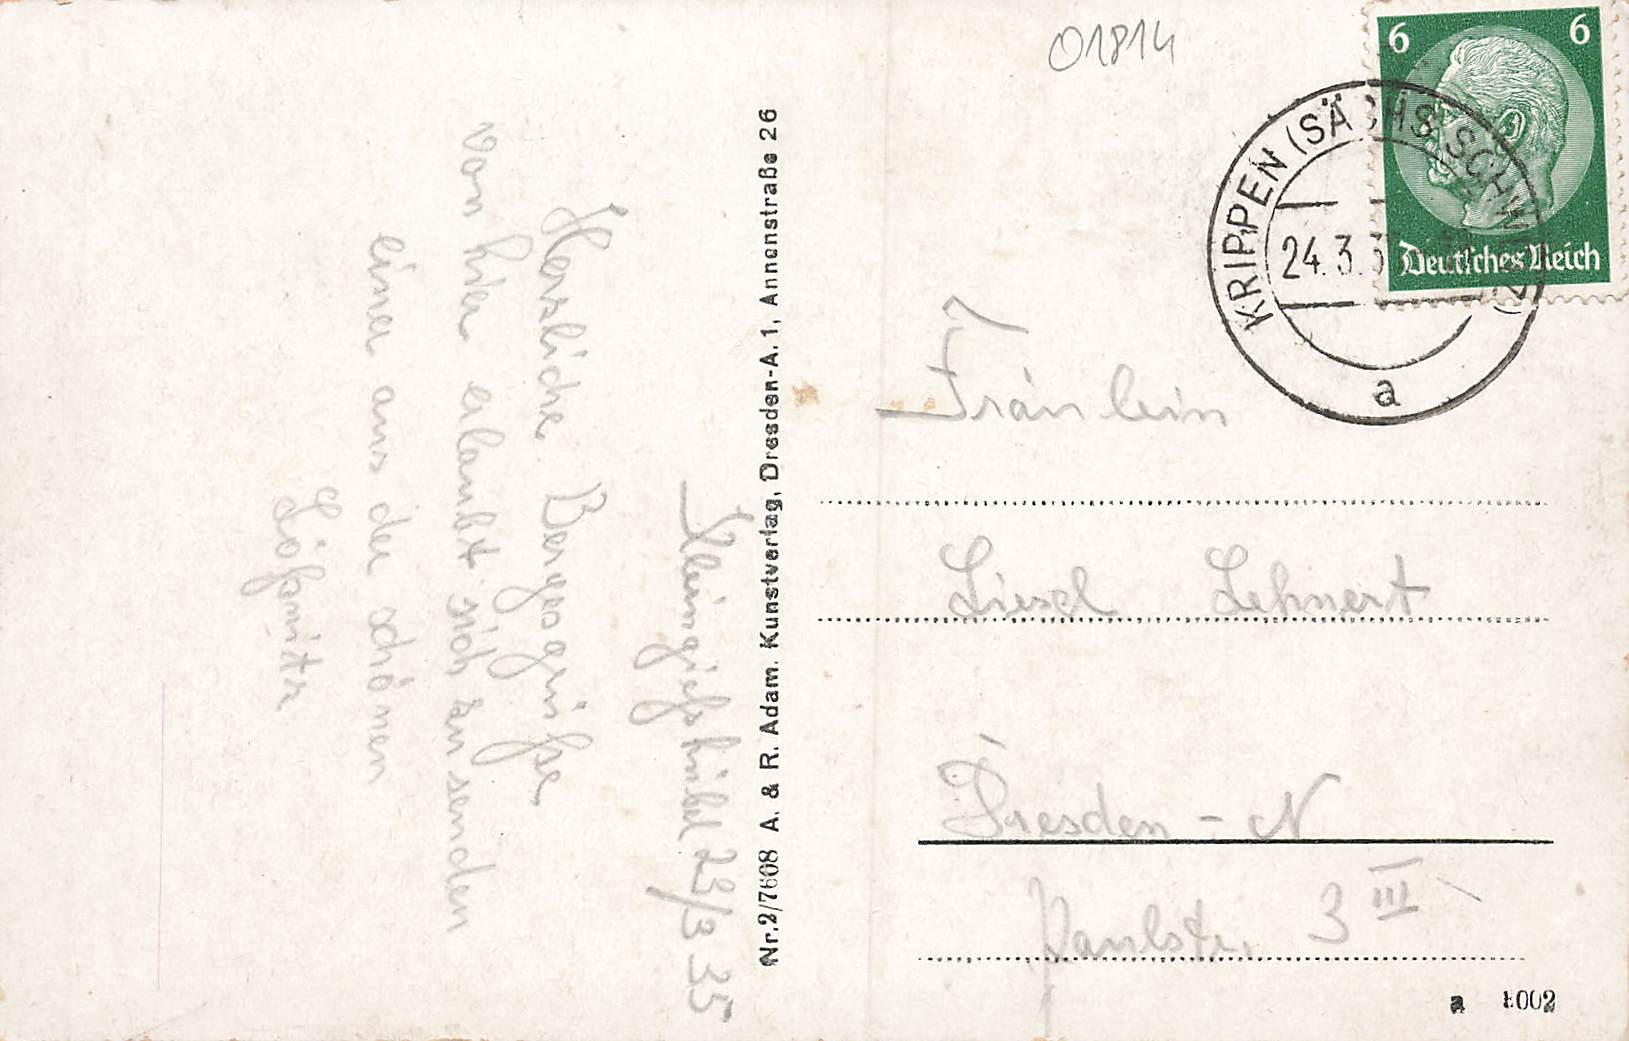 01814
6 6
Deutsches Reich
KRIPPEN (SÄCHS. SCHWEIZ)
24.3.3
a
Kleingießhübel 23/3 35
Herzliche Bergesgrüße
von hier erlaubt sich zu senden
einer aus der schönen
Lößnitz
Nr. 2/7608 A. & R. Adam. Kunstverlag, Dresden-A. 1, Annenstraße 26
Fräulein
Liesel Lehnert
Dresden - N
Paulstr. 3 III
a 1002